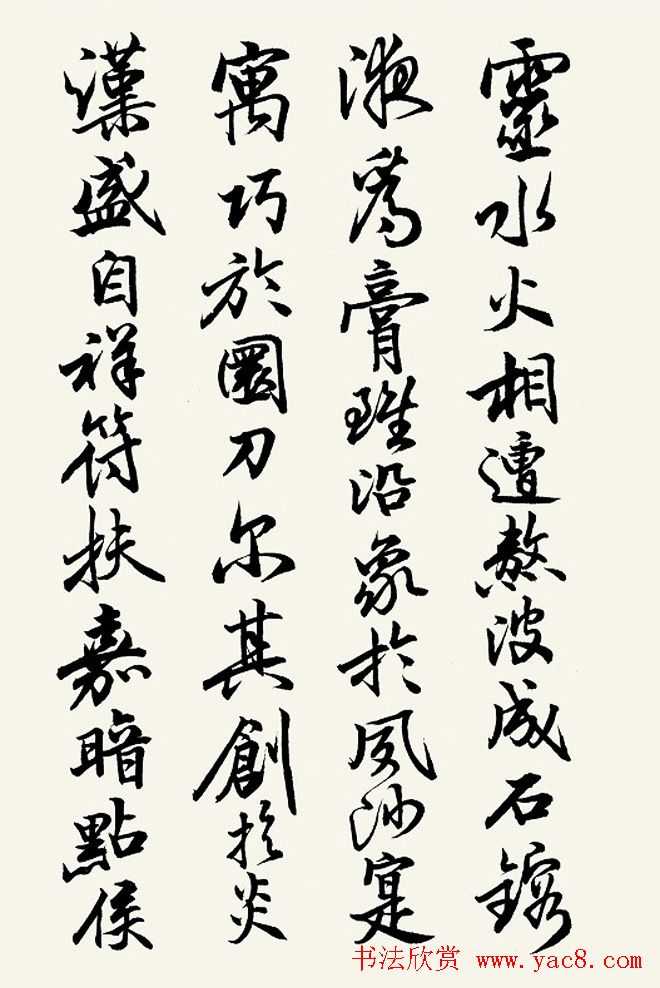 靈水火相遭熬波成石鎔
液為膏雖沿象於風沙寔
寓巧於圜刀尔其創於炎
漢盛自祥符扶嘉暗點侯
书法欣赏 www.yac8.com